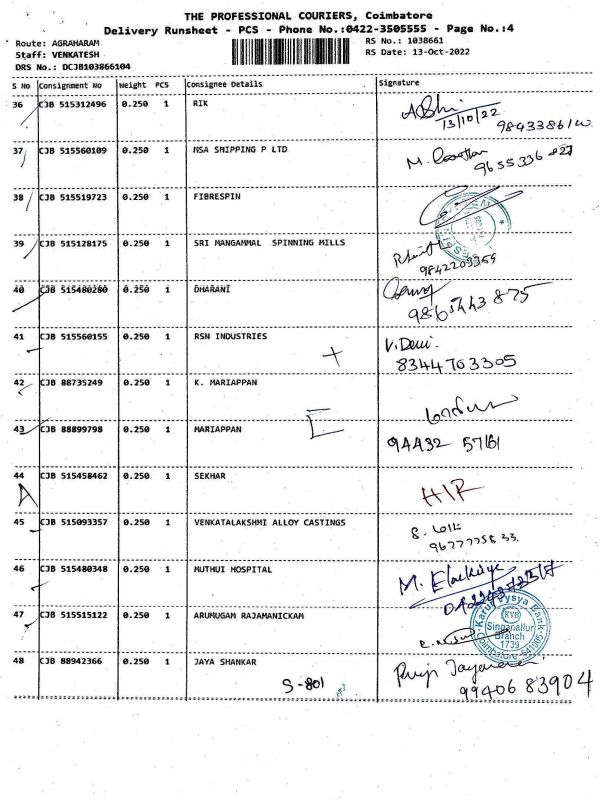 THE PROFESSIONAL COURIERS, Coimbatore
Delivery Runsheet - PCS - Phone No.:0422-3505555 - Page No.:4
Route: AGRAHARAM
RS No.: 1038661
Staff: VENKATESH
RS Date: 13-Oct-2022
DRS No.: DCJB103866104
S No Consignment No Weight PCS Consignee Details Signature
36 CJB 515312496 0.250 1 RIK
13/10/22
37 CJB 515560109 0.250 1 MSA SHIPPING P LTD
38 CJB 515519723 0.250 1 FIBRESPIN
39 CJB 515128175 0.250 1 SRI MANGAMMAL SPINNING MILLS
9842209369
40 CJB 515480280 0.250 1 DHARANI
41 CJB 515560155 0.250 1 RSN INDUSTRIES V. Devi.
8344703305
42 CJB 88735249 0.250 1 K. MARIAPPAN
43 CJB 88899798 0.250 1 MARIAPPAN
94432 57161
44 CJB 515458462 0.250 1 SEKHAR
A H/R
45 CJB 515093357 0.250 1 VENKATALAKSHMI ALLOY CASTINGS
46 CJB 515480348 0.250 1 MUTHUI HOSPITAL
47 CJB 515515122 0.250 1 ARUMUGAM RAJAMANICKAM
Karur Vysya Bank
KVB
Singanallur
Branch
1739
48 CJB 88942366 0.250 1 JAYA SHANKAR
S-801
99406 83904